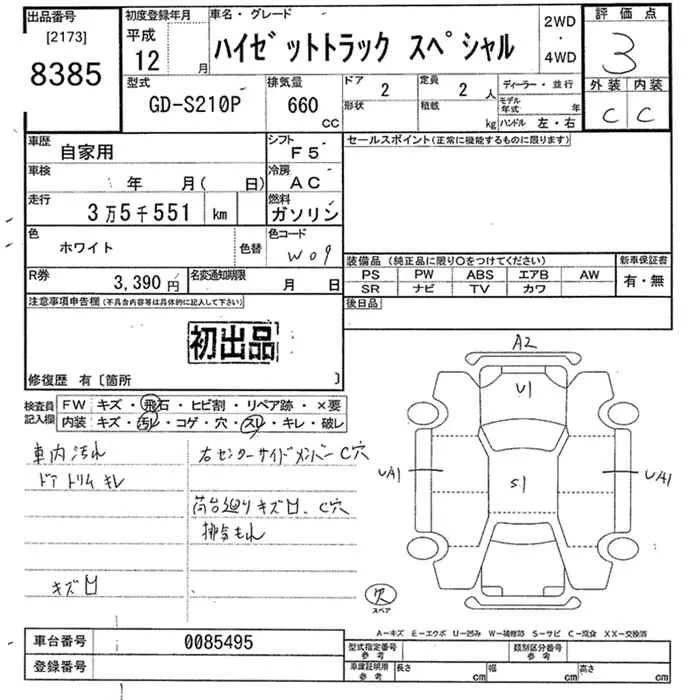 出品番号
[2173]
8385
初度登録年月
平成
12 月
車名・グレード
ハイゼットトラック スペシャル
2WD
・
4WD
評価点
3
外装 内装
C C
型式
GD-S210P
排気量
660
CC
ドア 2
形状
定員 2 人
積載 kg
ディーラー・並行
モデル年式 年
ハンドル 左・右
車歴
自家用
シフト
F5
車検
年 月( 日)
冷房
AC
走行
3万5千551 km
燃料
ガソリン
色
ホワイト
色替
色コード
W09
R券
3,390円
名変通知期限
月 日
セールスポイント(正常に機能するものに限ります)
装備品 (純正品に限り○をつけてください)
PS PW ABS エアB AW
SR ナビ TV カワ
新車保証書
有・無
後日品
注意事項申告欄(不具合内容等は具体的に記入して下さい)
初出品
修復歴 有〔箇所 〕
検査員記入欄
FW キズ・飛石・ヒビ割・リペア跡・×要
内装 キズ・汚レ・コゲ・穴・スレ・キレ・破レ
車内汚れ
ドアトリムキレ
キズ凹
右センターサイドメンバーC穴
荷台廻りキズ凹、C穴
排気もれ
A2
U1
UA1
S1
UA1
欠
スペア
A−キズ E−エクボ U−凹み W−補修跡 S−サビ C−腐食 XX−交換済
車台番号 0085495
登録番号
型式指定番号
参考
類別区分番号
参考
車庫証明用
参考
長さ cm 幅 cm 高さ cm